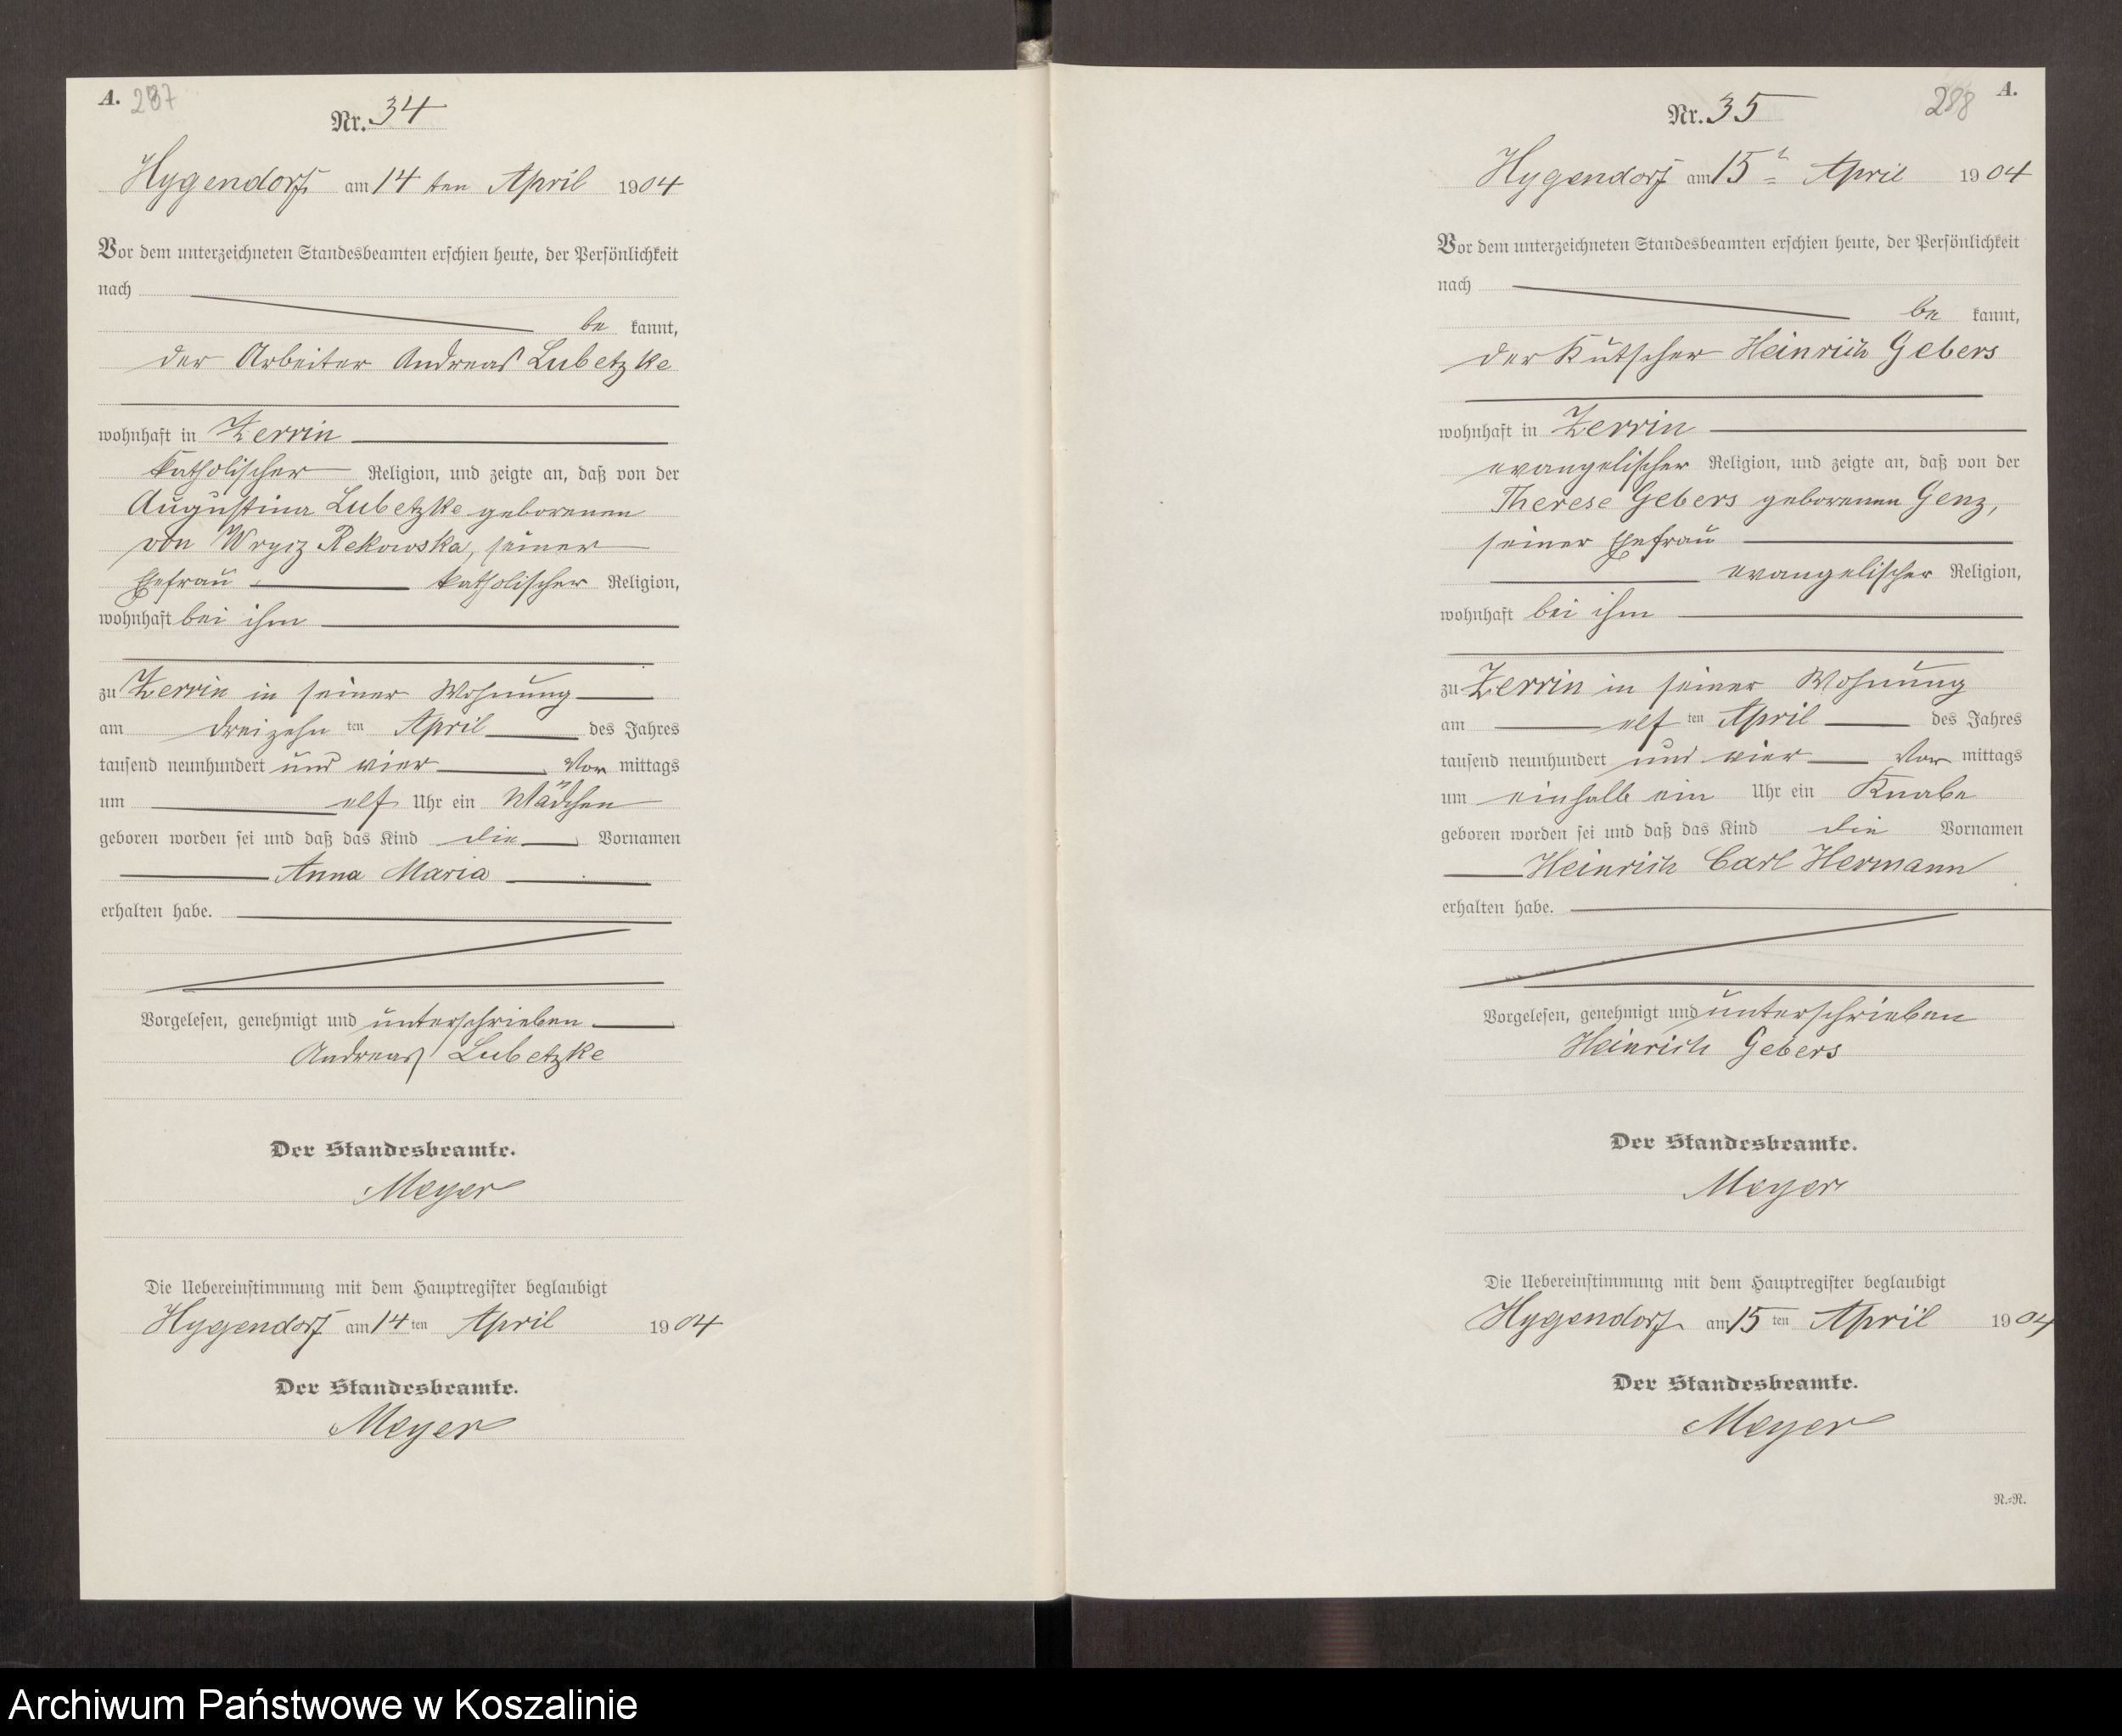 A. 287
Nr. 34
Hygendorf am 14 ten April 1904
Vor dem unterzeichneten Standesbeamten erschien heute, der Persönlichkeit
nach
be kannt,
der Arbeiter Andreas Lubetzke
wohnhaft in Zerrin
katholischer Religion, und zeigte an, daß von der
Augustina Lubetzke geborenen
von Wrycz Rekowska, seiner
Ehefrau katholischer Religion,
wohnhaft bei ihm
zu Zerrin in seiner Wohnung
am dreizehn ten April des Jahres
tausend neunhundert und vier Vor mittags
um elf Uhr ein Mädchen
geboren worden sei und daß das Kind die Vornamen
Anna Maria
erhalten habe.
Vorgelesen, genehmigt und unterschrieben
Andreas Lubetzke
Der Standesbeamte.
Meyer
Die Uebereinstimmung mit dem Hauptregister beglaubigt
Hygendorf am 14 ten April 1904
Der Standesbeamte.
Meyer
288 A.
Nr. 35
Hygendorf am 15t April 1904
Vor dem unterzeichneten Standesbeamten erschien heute, der Persönlichkeit
nach
be kannt,
der Kutscher Heinrich Gebers
wohnhaft in Zerrin
evangelischer Religion, und zeigte an, daß von der
Therese Gebers geborenen Genz,
seiner Ehefrau
evangelischer Religion,
wohnhaft bei ihm
zu Zerrin in seiner Wohnung
am elf ten April des Jahres
tausend neunhundert und vier Vor mittags
um einhalb ein Uhr ein Knabe
geboren worden sei und daß das Kind die Vornamen
Heinrich Carl Hermann
erhalten habe.
Vorgelesen, genehmigt und unterschrieben
Heinrich Gebers
Der Standesbeamte.
Meyer
Die Uebereinstimmung mit dem Hauptregister beglaubigt
Hygendorf am 15 ten April 1904
Der Standesbeamte.
Meyer
N.=R.
Archiwum Państwowe w Koszalinie